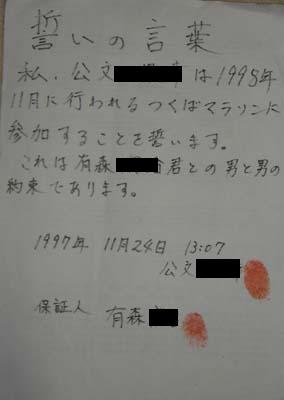 誓いの言葉
私、公文は1998年
11月に行われるつくばマラソンに
参加することを誓います。
これは有森君との男と男の
約束であります。
1997年 11月24日 13:07
公文
保証人 有森